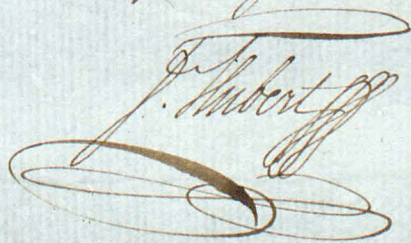 J. Hubert